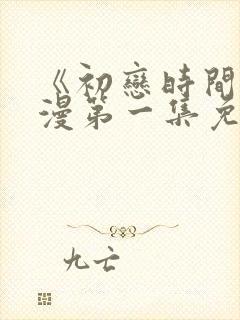 《初戀時間
漫第一集免
九亡